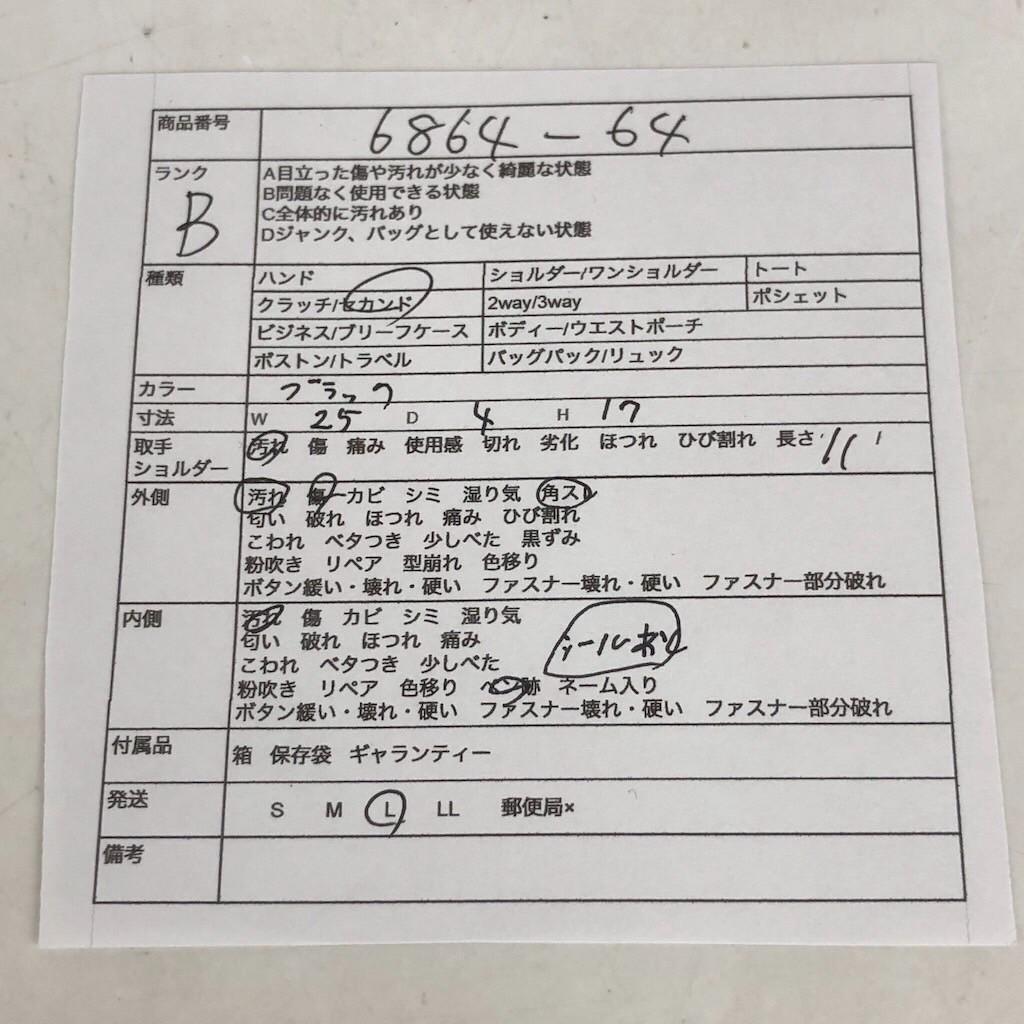 商品番号 6864-64
ランク B
A目立った傷や汚れが少なく綺麗な状態
B問題なく使用できる状態
C全体的に汚れあり
Dジャンク、バッグとして使えない状態
種類 ハンド ショルダー/ワンショルダー トート
クラッチ/セカンド 2way/3way ポシェット
ビジネス/ブリーフケース ボディー/ウエストポーチ
ボストン/トラベル バッグパック/リュック
カラー ブラック
寸法 W 25 D 4 H 17
取手 汚れ 傷 痛み 使用感 切れ 劣化 ほつれ ひび割れ 長さ 11
ショルダー
外側 汚れ 傷 カビ シミ 湿り気 角スレ
匂い 破れ ほつれ 痛み ひび割れ
こわれ ベタつき 少しべた 黒ずみ
粉吹き リペア 型崩れ 色移り
ボタン緩い・壊れ・硬い ファスナー壊れ・硬い ファスナー部分破れ
内側 汚れ 傷 カビ シミ 湿り気
匂い 破れ ほつれ 痛み
こわれ ベタつき 少しべた
粉吹き リペア 色移り ペン跡 ネーム入り
ボタン緩い・壊れ・硬い ファスナー壊れ・硬い ファスナー部分破れ
付属品 箱 保存袋 ギャランティー
発送 S M L LL 郵便局×
備考